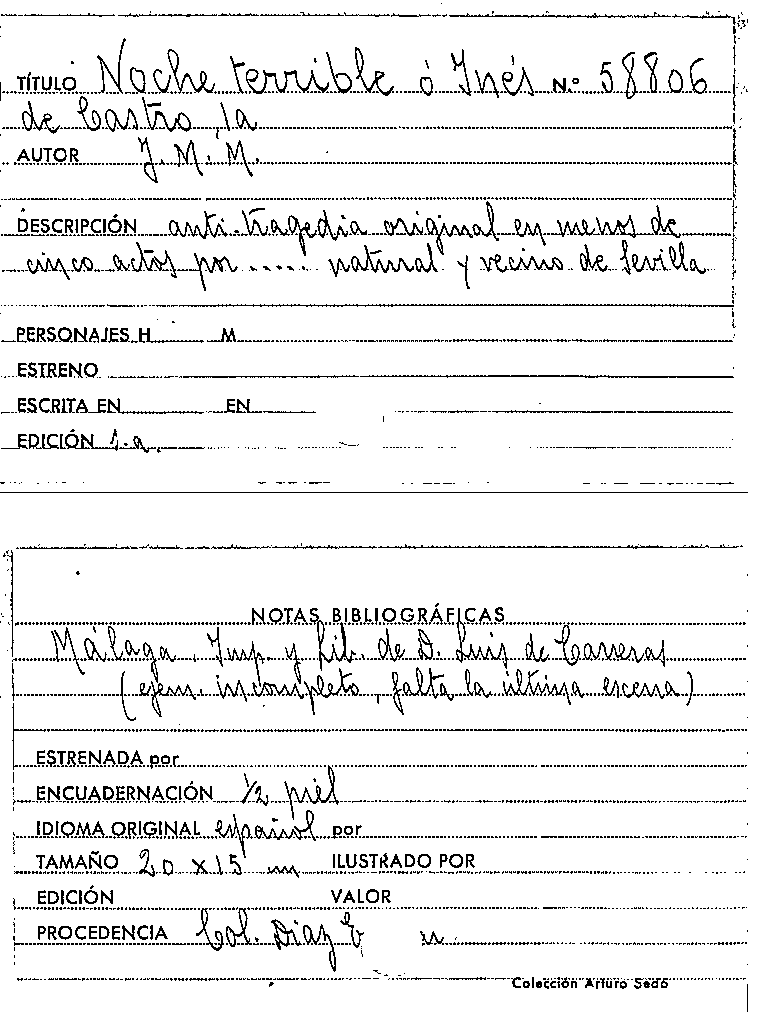 TÍTULO Noche terrible ó Inés N.º 58806
de Castro, la
AUTOR J. M. M.
DESCRIPCIÓN anti-tragedia original en menos de
cinco actos por ..... natural y vecino de Sevilla
PERSONAJES H M
ESTRENO
ESCRITA EN EN
EDICIÓN 1.a.
NOTAS BIBLIOGRÁFICAS
Málaga, Imp. y Lib. de D. Luis de Carreras
(ejem. incompleto, falta la última escena)
ESTRENADA por
ENCUADERNACIÓN 1/2 piel
IDIOMA ORIGINAL español por
TAMAÑO 20 x 15 ILUSTRADO POR
EDICIÓN VALOR
PROCEDENCIA Col. Diaz
Colección Arturo Sedó